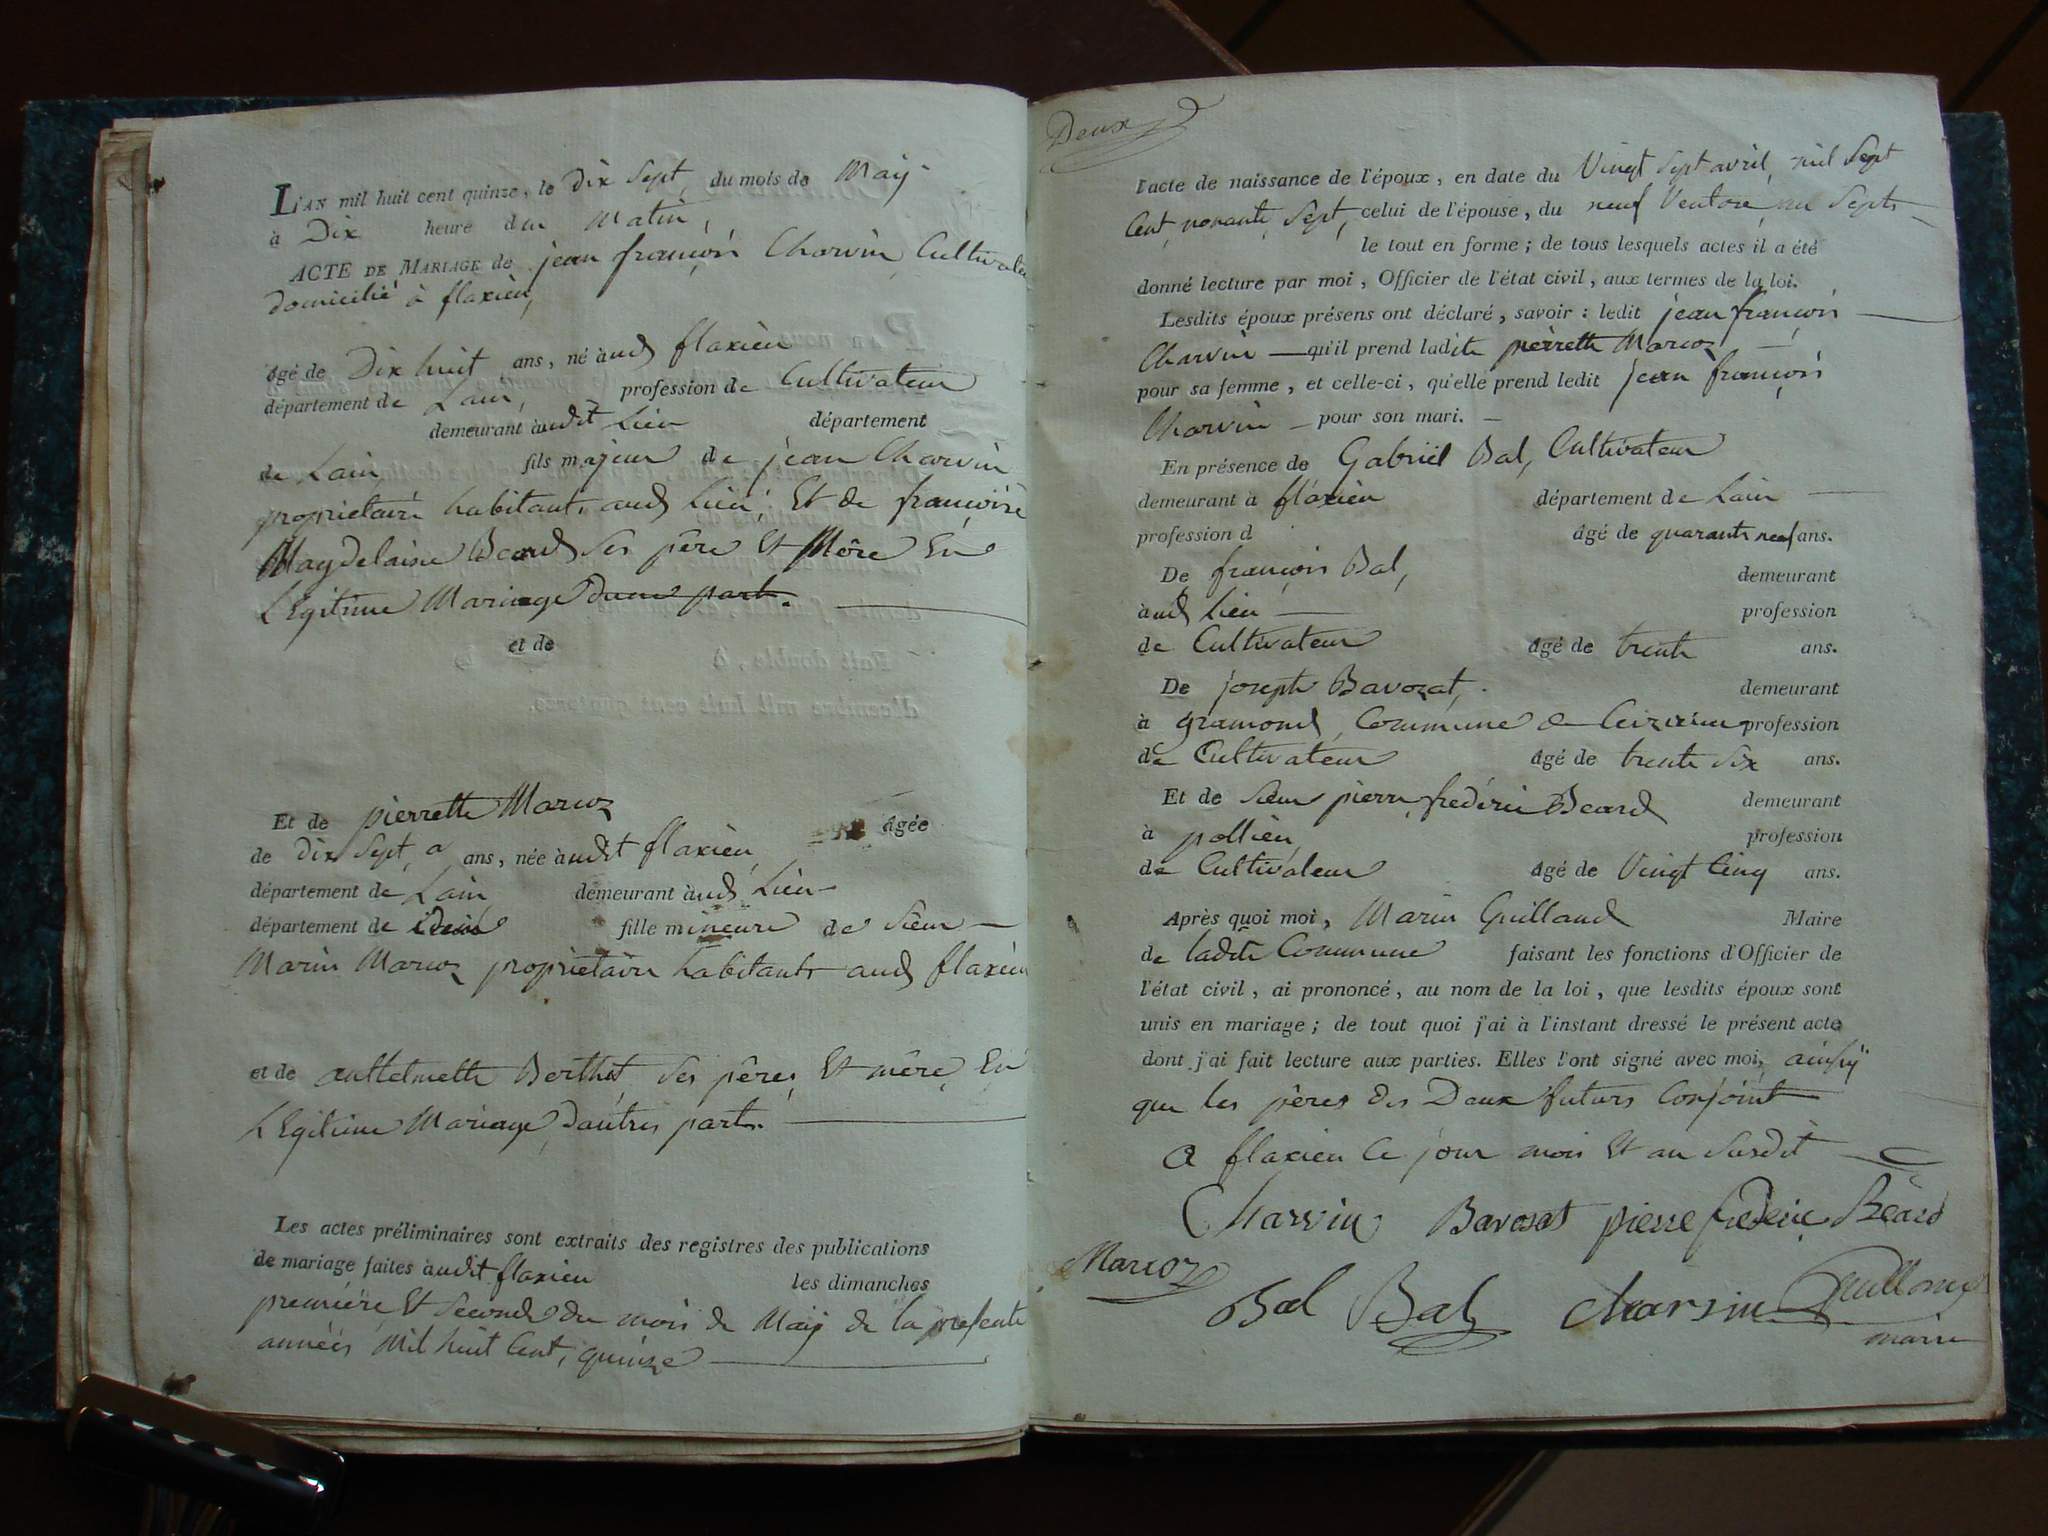 L'AN mil huit cent quinze, le Dix Sept, du mois de May
à Dix heure du Matin,
ACTE DE MARIAGE de jean françois Charvin Cultivateur
domicilié à flaxieu,
âgé de Dix huit ans, né aud flaxieu
département de Lain, profession de Cultivateur
demeurant audit Lieu département
de Lain fils majeur de jean Charvin
proprietaire habitant aud Lieu, Et de françoise
Magdelaine Beard Ses père Et Mère En
LEgitime Mariage dune part.
et de
Et de pierrette Marcoz âgée
de Dix Sept ans, née audit flaxieu
département de Lain demeurant aud Lieu
département de idem fille mineure de Sieur
Marin Marcoz proprietaire habitant aud flaxieu
et de anthelmette Berthet Ses pères Et mère En
LEgitime Mariage Dautres parts.
Les actes préliminaires sont extraits des registres des publications
de mariage faites audit flaxieu les dimanches
premiére Et Seconde du mois de May de la presente
années Mil huit Cent, quinze
Deux
l'acte de naissance de l'époux, en date du Vingt Sept avril, mil Sept
Cent nonante Sept, celui de l'épouse, du neuf Ventose an Septs
le tout en forme; de tous lesquels actes il a été
donné lecture par moi, Officier de l'état civil, aux termes de la loi.
Lesdits époux présens ont déclaré, savoir: ledit jean françois
Charvin qu'il prend ladite pierrette Marcoz
pour sa femme, et celle-ci, qu'elle prend ledit jean françois
Charvin pour son mari.
En présence de Gabriel Bal, Cultivateur
demeurant à flaxieu département de Lain
profession d âgé de quarante neuf ans.
De françois Bal, demeurant
aud Lieu profession
de Cultivateur âgé de trente ans.
De joseph Bavozat, demeurant
à gramond Commune de Ceizerieu profession
de Cultivateur âgé de trente Six ans.
Et de Sieur pierre frédéric Beard demeurant
à pollieu profession
de Cultivateur âgé de Vingt Cinq ans.
Après quoi moi, Marin Guilland Maire
de ladite Commune faisant les fonctions d'Officier de
l'état civil, ai prononcé, au nom de la loi, que lesdits époux sont
unis en mariage; de tout quoi j'ai à l'instant dressé le présent acte
dont j'ai fait lecture aux parties. Elles l'ont signé avec moi, ainsy
que les pères des Deux futurs Conjoint
a flaxieu le jour mois Et an susdit
Charvin Bavosat pierre frederic Béard
Marcoz Bal Bal charvin Guilland
maire